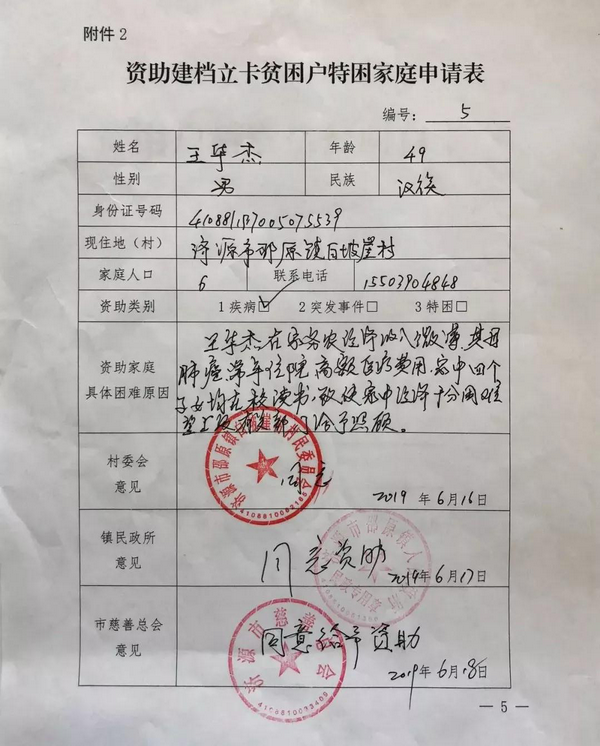 附件2
资助建档立卡贫困户特困家庭申请表
编号: 5
姓名 王华杰 年龄 49
性别 男 民族 汉族
身份证号码 410881197005075539
现住地（村） 济源市邵原镇白坡崖村
家庭人口 6 联系电话 15503904848
资助类别 1 疾病☑ 2 突发事件□ 3 特困□
资助家庭
具体困难原因
王华杰在家务农经济收入微薄,其母
肺癌,常年住院高额医疗费用,家中四个
子女均在校读书,致使家中经济十分困难
望上级部门给予照顾。
村委会
意见
同意
2019 年6月16日
济源市邵原镇白坡崖村村民委员会
镇民政所
意见
同意资助
2019年6月17日
市慈善总会
意见
同意给予资助
2019年6月18日
济源市慈善总会
— 5 —